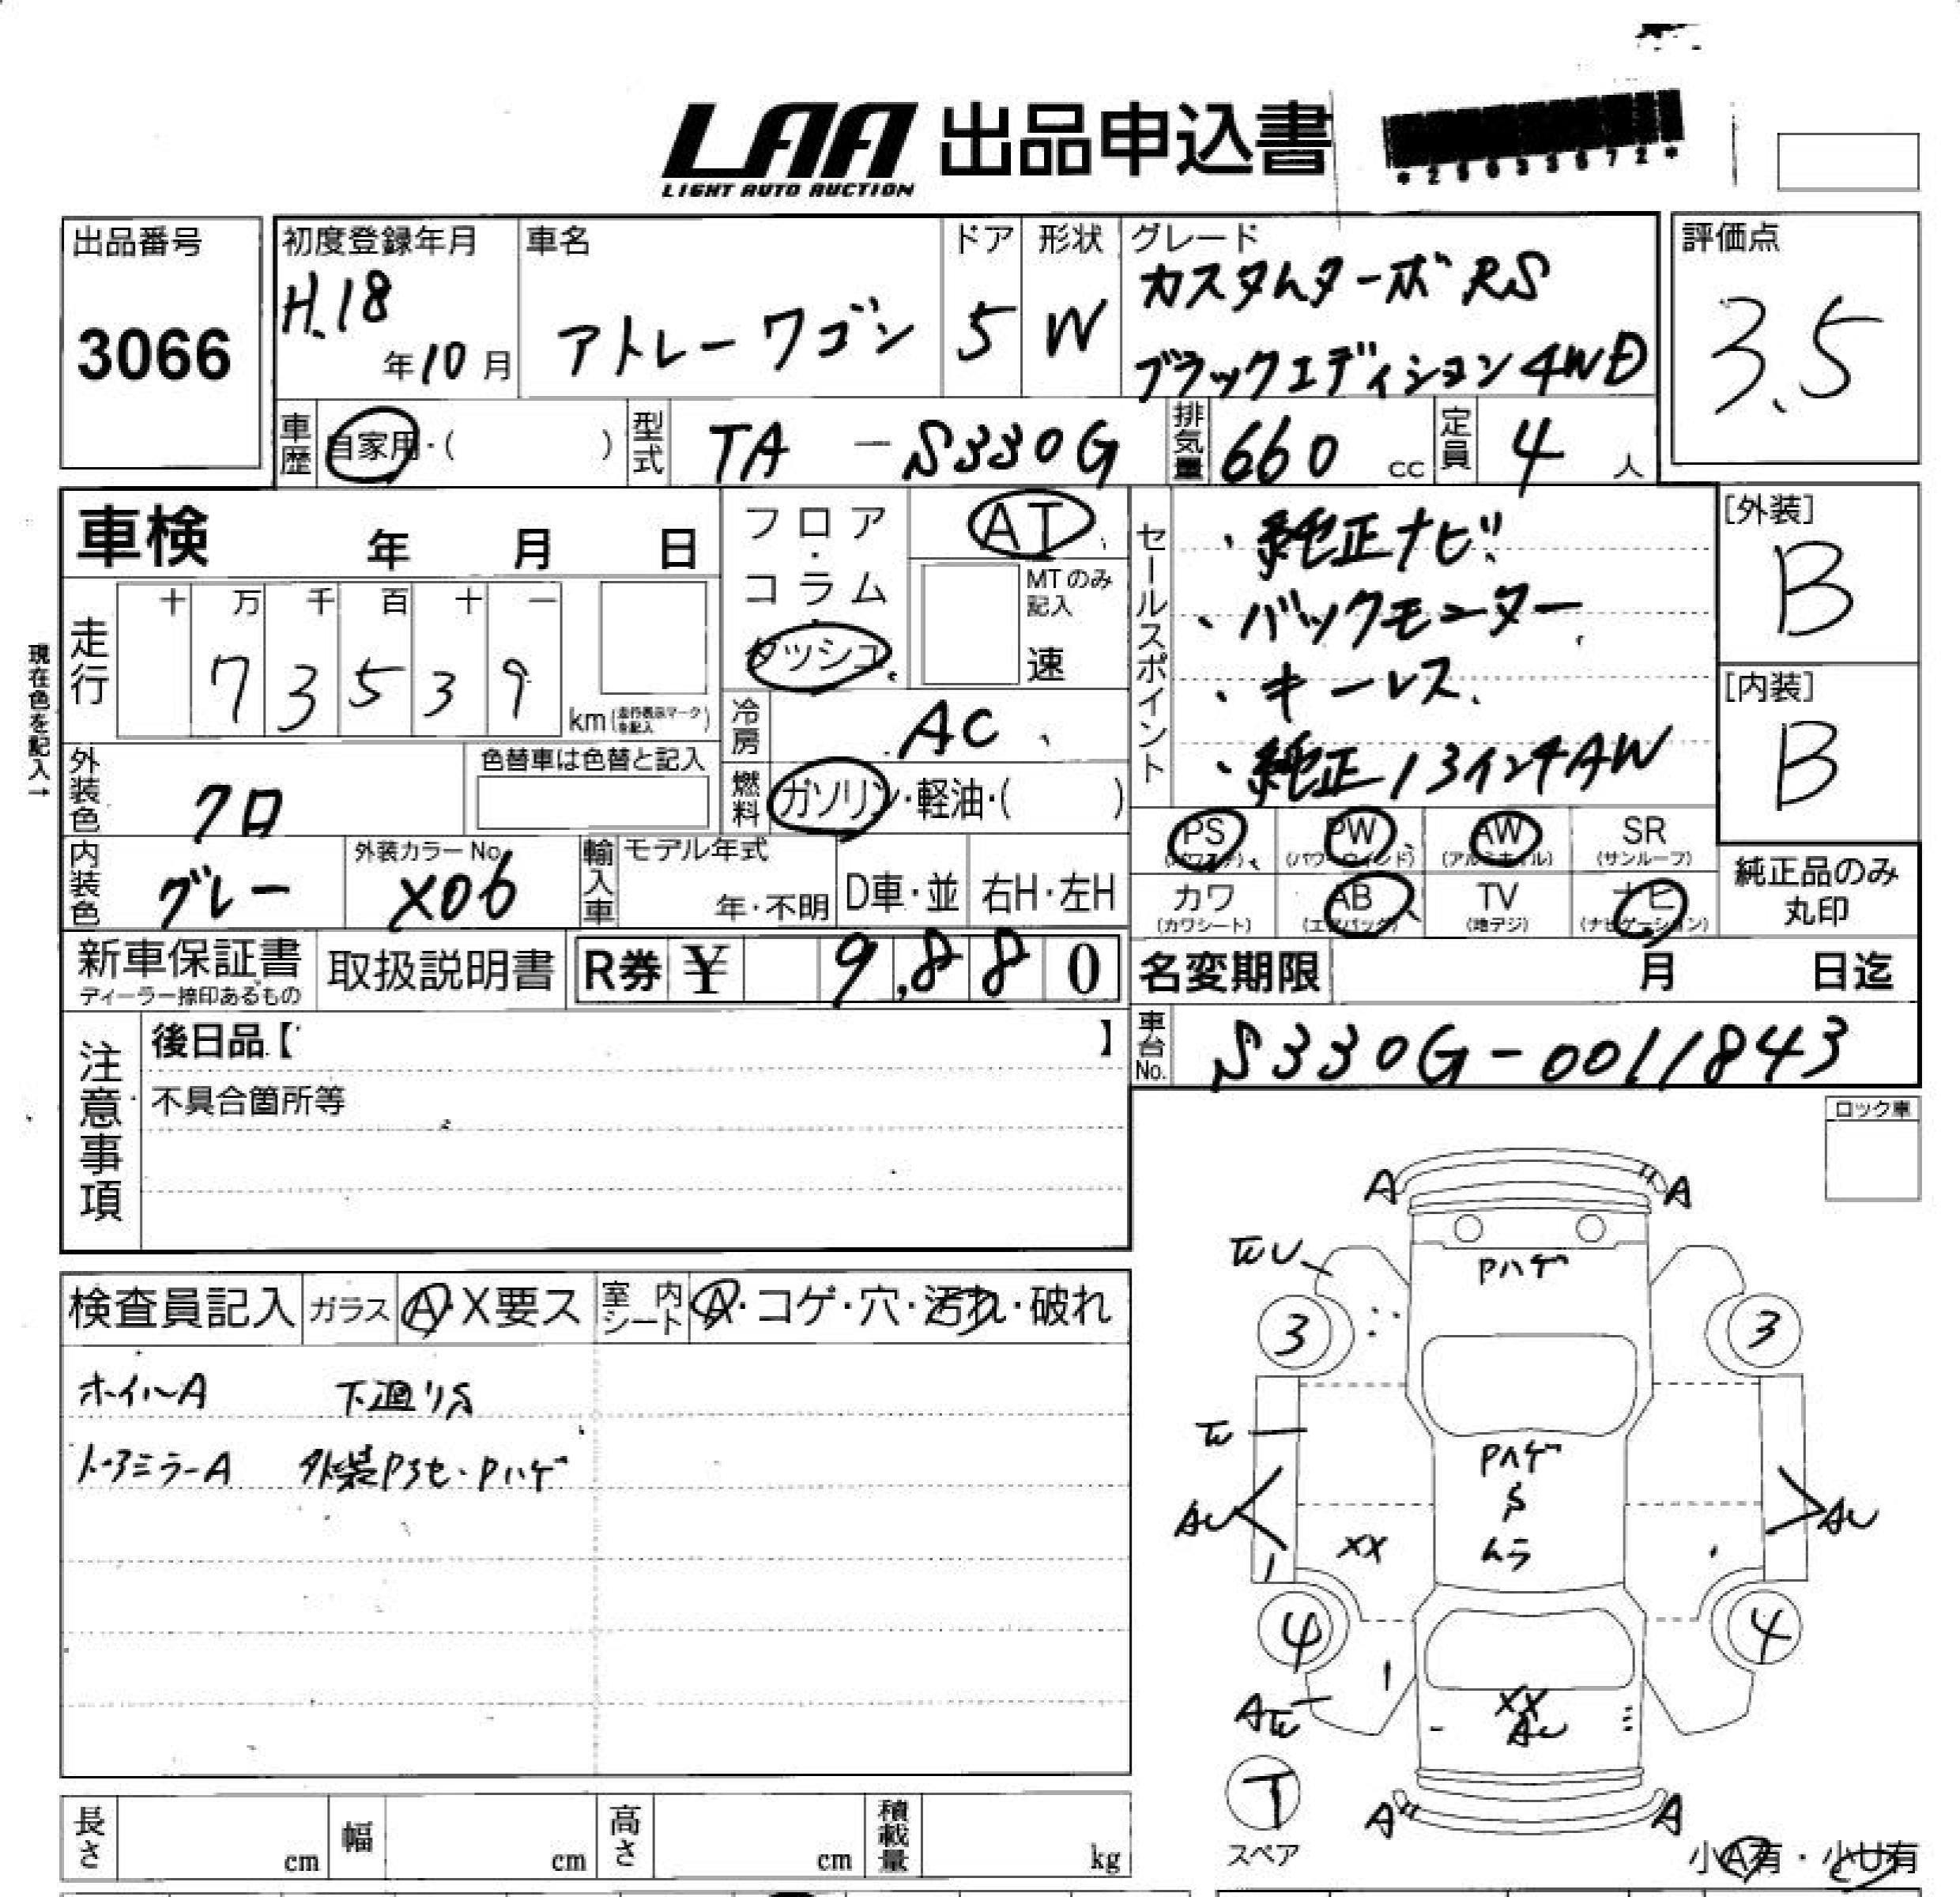 LAA 出品申込書
LIGHT AUTO AUCTION
出品番号
3066
初度登録年月
H.18年10月
車名
アトレーワゴン
ドア
5
形状
W
グレード
カスタムターボRS
ブラックエディション4WD
評価点
3.5
車歴 自家用・( )
型式 TA-S330G
排気量 660 cc
定員 4 人
車検 年 月 日
フロア・コラム・ダッシュ
AT
MTのみ記入
速
セールスポイント
・純正ナビ
・バックモニター
・キーレス
・純正13インチAW
[外装]
B
[内装]
B
現在色を記入→
走行
十 万 千 百 十 一
7 3 5 3 9
km(走行表示マークを記入)
冷房 AC
燃料 ガソリン・軽油・( )
外装色 クロ
色替車は色替と記入
内装色 グレー
外装カラーNo. X06
輸入車
モデル年式
年・不明
D車・並
右H・左H
PS (パワステ)
PW (パワーウィンド)
AW (アルミホイル)
SR (サンルーフ)
カワ (カワシート)
AB (エアバッグ)
TV (地デジ)
ナビ (ナビゲーション)
純正品のみ
丸印
新車保証書
ディーラー捺印あるもの
取扱説明書
R券 ¥ 9,880
名変期限 月 日迄
車台No. S330G-0011843
注意事項
後日品【 】
不具合箇所等
ロック車
検査員記入
ガラス A・X要ス
室内シート A・コゲ・穴・汚れ・破れ
ホイルA 下廻りS
ドアミラーA 外装Pヨセ・Pハゲ
A A
Pハゲ
3 3
Pハゲ
S
ムラ
AU AU
XX
4 4
XX
AU
T
スペア
A A
小A有・小U有
長さ cm
幅 cm
高さ cm
積載量 kg